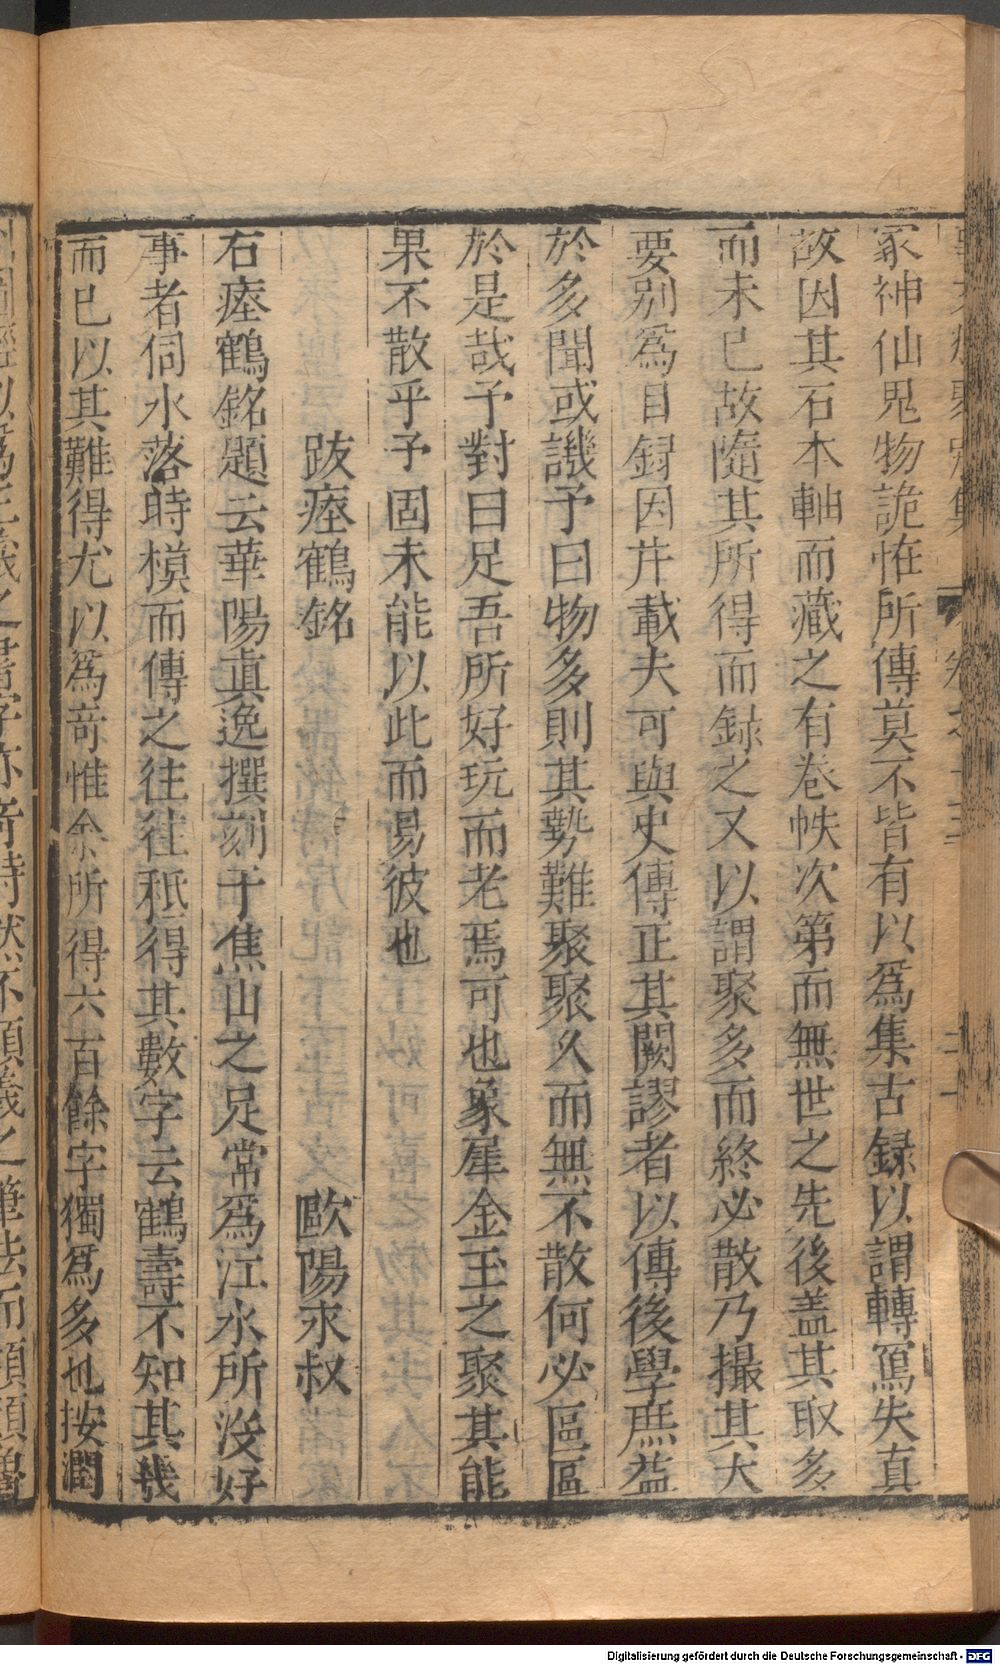 冢神仙鬼物詭怪所傳莫不皆有以爲集古録以謂轉寫失真
故因其石本軸而藏之有卷帙次第而無世之先後盖其取多
而未已故隨其所得而録之又以謂聚多而終必散乃撮其大
要别爲目録因并載夫可與史傳正其闕謬者以傳後學庶益
於多聞或譏予曰物多則其勢難聚聚久而無不散何必區區
於是哉予對曰足吾所好玩而老焉可也象犀金玉之聚其能
果不散乎予固未能以此而易彼也
跋瘞鶴銘 歐陽永叔
右瘞鶴銘題云華陽真逸撰刻于焦山之足常爲江水所沒好
事者伺水落時模而傳之往往秪得其數字云鶴壽不知其幾
而已以其難得尤以爲竒惟余所得六百餘字獨爲多也按潤
Digitalisierung gefördert durch die Deutsche Forschungsgemeinschaft - DFG